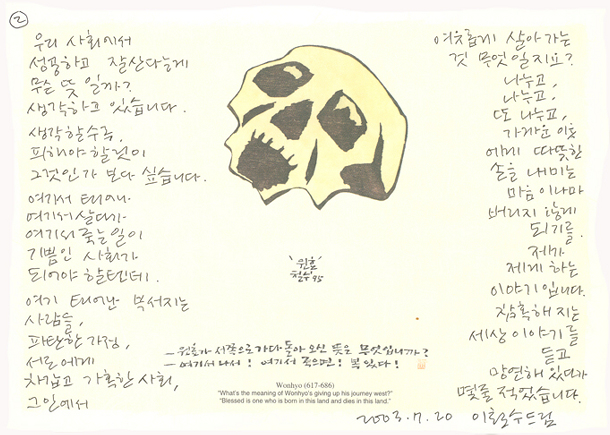 2
우리 사회에서
성공하고 잘산다는게
무슨 뜻일까?
생각하고 있습니다.
생각할수록,
피해야 할 것이
그것인가 보다 싶습니다.
여기서 태어나
여기서 살다가
여기서 죽는 일이
기쁨인 사회가
되어야 할텐데.
여기 태어난 부서지는
사람들,
파탄한 가정,
서로에게
차갑고 가혹한 사회,
그 안에서
여유롭게 살아가는
것 무엇일지요?
나누고,
나누고,
또 나누고,
가까운 이웃
에게 따뜻한
손을 내미는
마음이나마
버리지 않게
되기를.
제가
제게 하는
이야기입니다.
참혹해지는
세상 이야기를
듣고
망연해 있다가
몇줄 적었습니다.
2003.7.20 이철수드림
원효
철수 95
- 원효가 서쪽으로 가다 돌아오신 뜻은 무엇입니까?
- 여기서 나서! 여기서 죽으면! 복 있다!
Wonhyo (617-686)
"What's the meaning of Wonhyo's giving up his journey west?"
"Blessed is one who is born in this land and dies in this land."